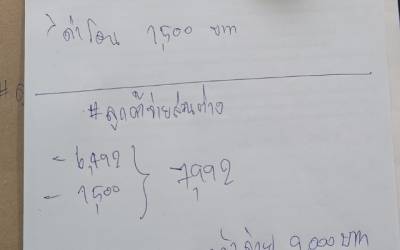 > ค่าโอน 1,500 บาท
# ลูกค้าจ่ายส่วนต่าง
- 6,492
- 1,500 } 7,992
9,000 บาท